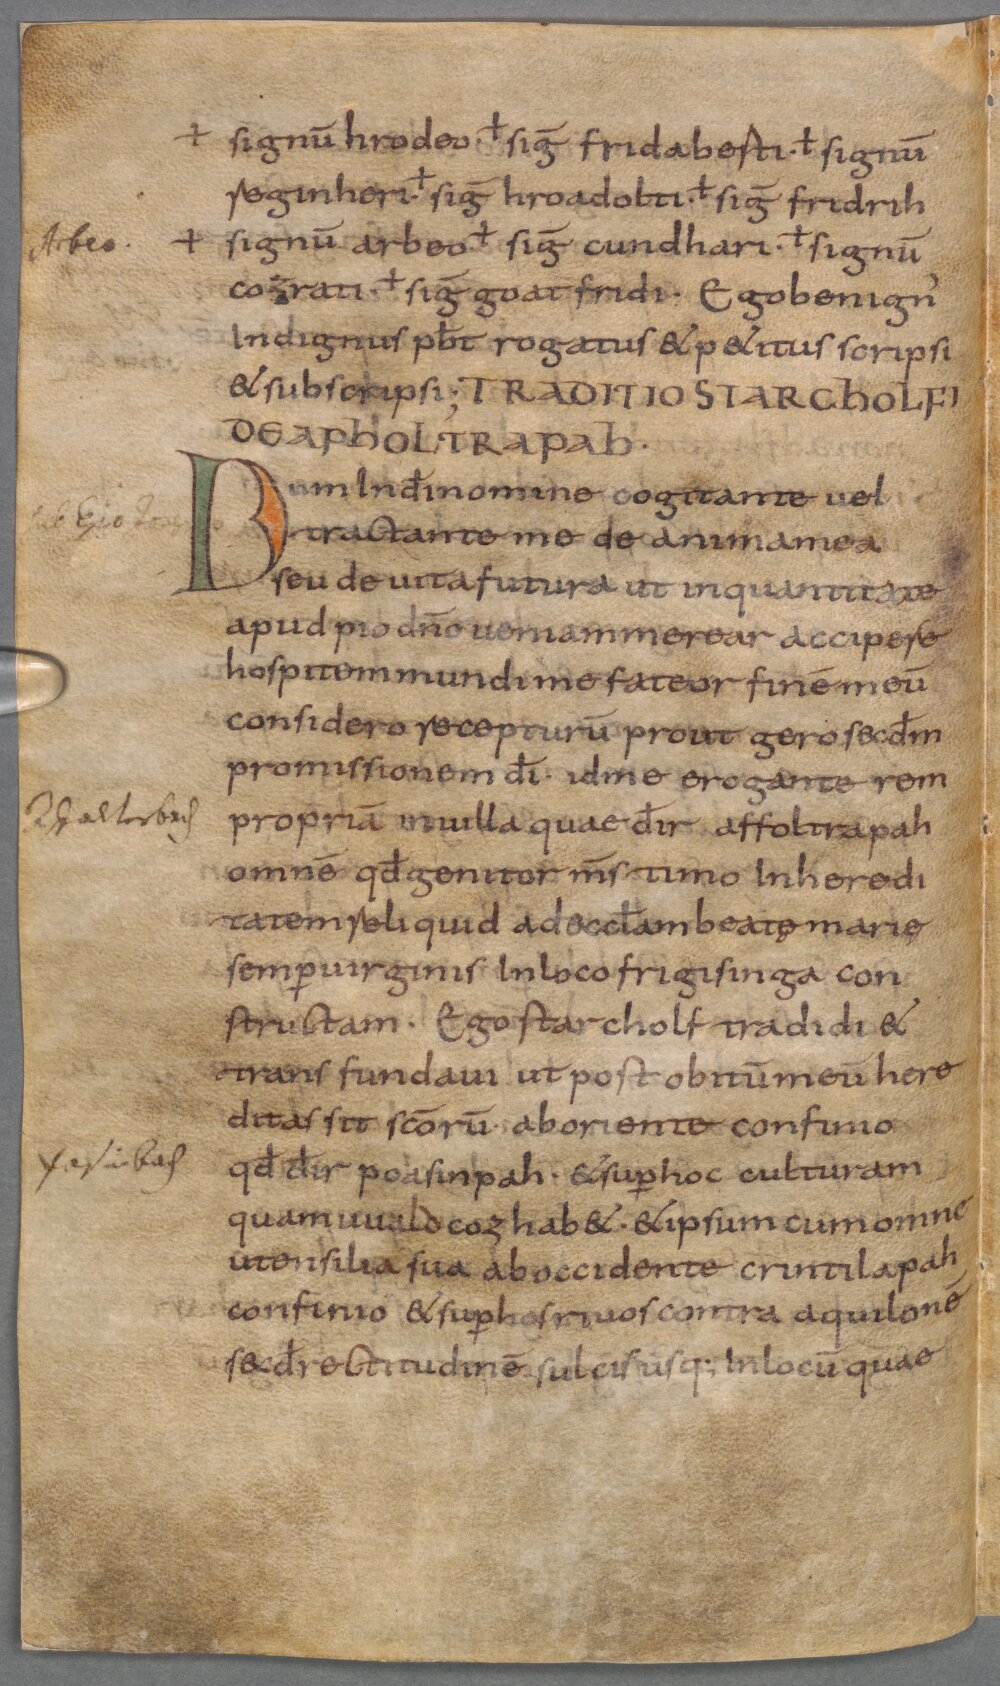 + signū hrodeo · + sig̅ fridabesti · + signū
reginheri · + sig̅ hroadolti · + sig̅ fridrih
Arbeo.
+ signū arbeo + sig̅ cundhari · + signū
cozrati · + sig̅ goatfridi · Ego benignꝰ
Indignus pb̅t rogatus & p&itus scripsi
& subscripsi; TRADITIO STARCHOLFI
DE APHOLTRAPAH ·
Dum In dī nomine cogitante uel
tractante me de anima mea
seu de uita futura ut in quantitate
apud pio dn̄o ueniam merear accipere
hospitem mundi me fateor finē meū
considero recepturū prout gero secdm̅
promissionem dī · id me erogante rem
propriā in uilla quae dr̅ affoltrapah
omnē qd̅ genitor ms̅ timo In heredi
tatem reliquid ad eccłam beatę marię
semp̱ uirginis In loco frigisinga con
structam · Ego starcholf tradidi &
transfundaui ut post obitū meū here
ditas sit scōrū · ab oriente confinio
qd̅ dr̅ poasinpah · & sup̱ hoc culturam
quam uualdcoz hab& · & ipsum cum omne
utensilia sua ab occidente crintilapah
confinio & sup̱ hos riuos contra aquilonē
secd̅ rectitudinē sulcis usq; In locū quae